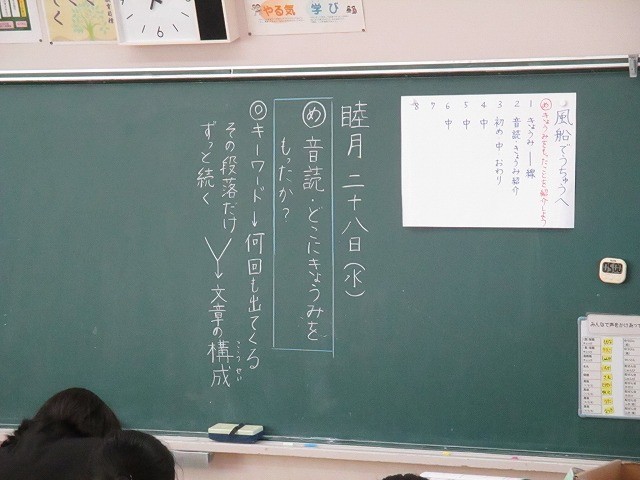 やる気
学び
風船でうちゅうへ
めきょうみをもったことを紹介しよう
1 きょうみ 線
2 音読・きょうみ紹介
3 初め 中 おわり
4 中
5 中
6 中
7
8
睦月二十八日(水)
め 音読・どこにきょうみを
もったか?
◎キーワード→何回も出てくる
その段落だけ
ずっと続く
→文章の構成
こうせい
みんなで声をかけあって